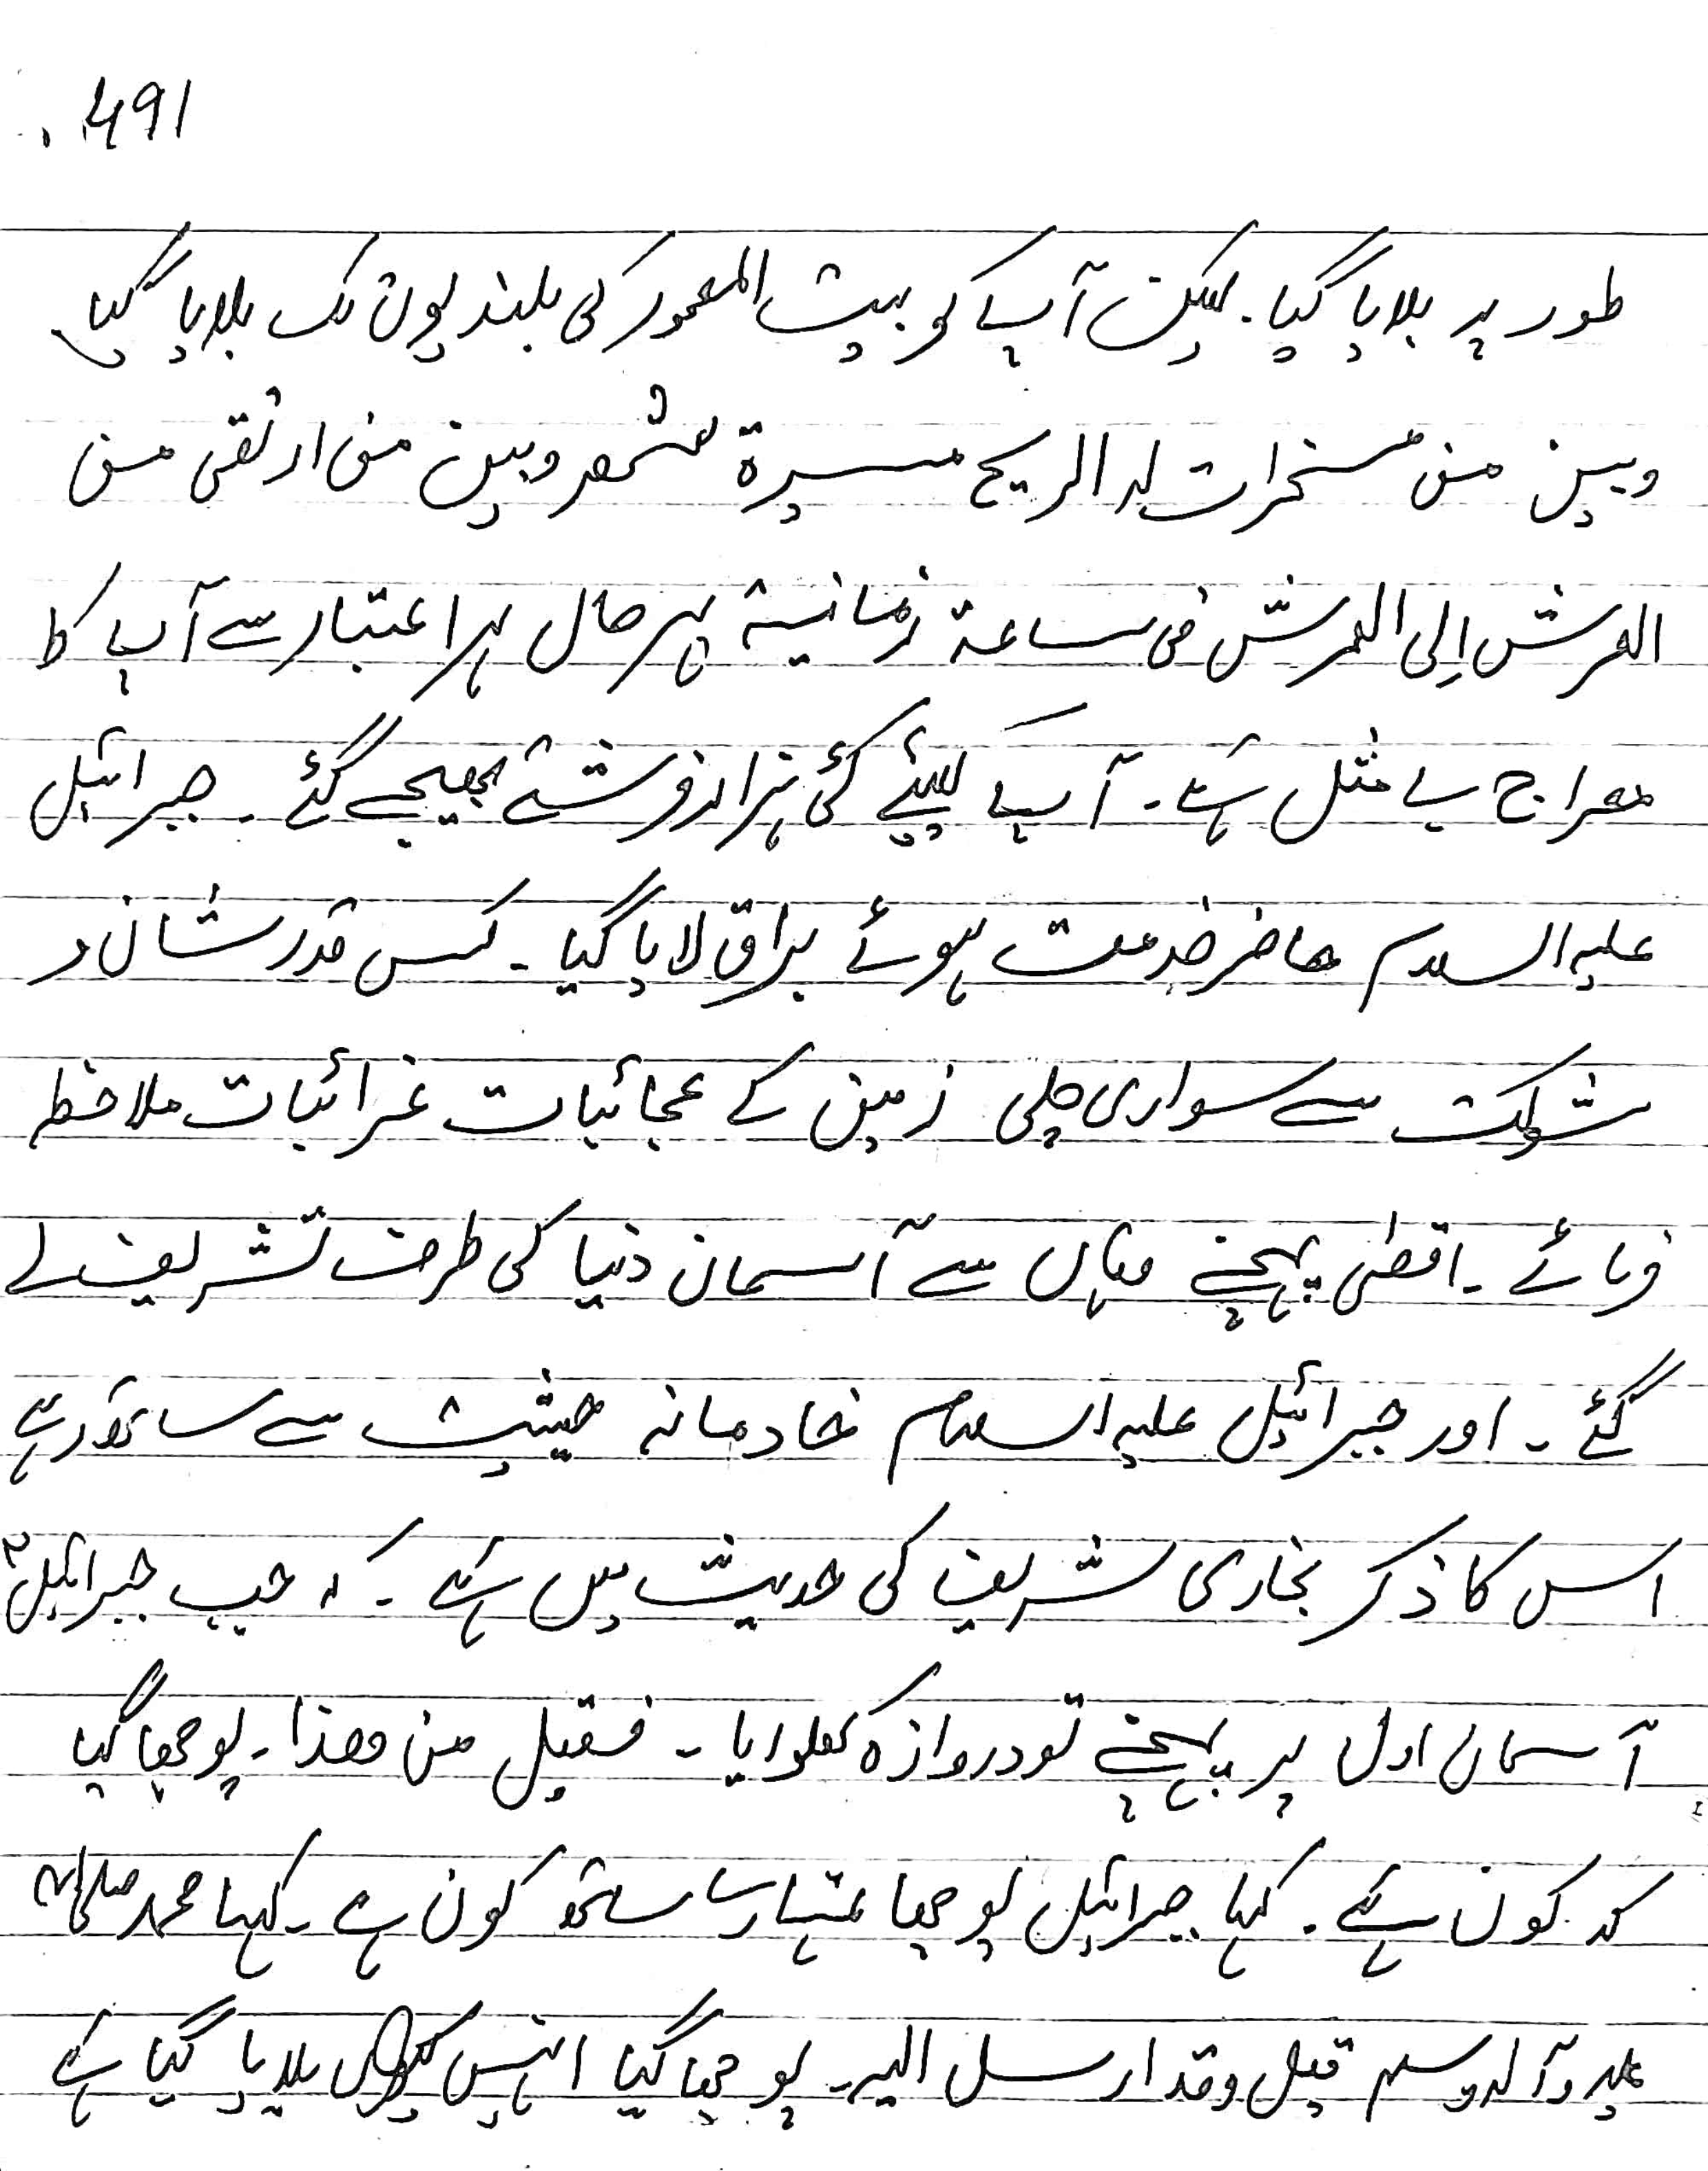 491
طور پر بلایا گیا۔ لیکن آپ کو بیت المعمور کی بلندیوں تک بلایا گیا
وبین من سخرات لہ الریح مسیرۃ شھر وبین من ارتقی من
الفرش اِلی العرش فی ساعۃ زمانیۃ بہر حال ہر اعتبار سے آپ کا
معراج بے مثل ہے۔ آپ کیلئے کئی ہزار فرشتے بھیجے گئے۔ جبرائیل
علیہ السلام حاضر خدمت ہوئے براق لایا گیا۔ کس قدر شان و
شوکت سے سواری چلی زمین کے عجائبات غرائبات ملاحظہ
فرمائے۔ اقصٰی پہنچے وہاں سے آسمان دنیا کی طرف تشریف لے
گئے۔ اور جبرائیل علیہ السلام خادمانہ حیثیت سے ساتھ رہے
اس کا ذکر بخاری شریف کی حدیث میں ہے۔ کہ جب جبرائیلؑ
آسمان اول پر پہنچے تو دروازہ کھلوایا۔ فقیل من ھذا۔ پوچھا گیا
کہ کون ہے۔ کہا جبرائیل پوچھا تمہارے ساتھ کون ہے۔ کہا محمد صلی اللہ
علیہ وآلہ وسلم قیل وقد ارسل الیہ۔ پوچھا گیا انہیں بلایا گیا ہے